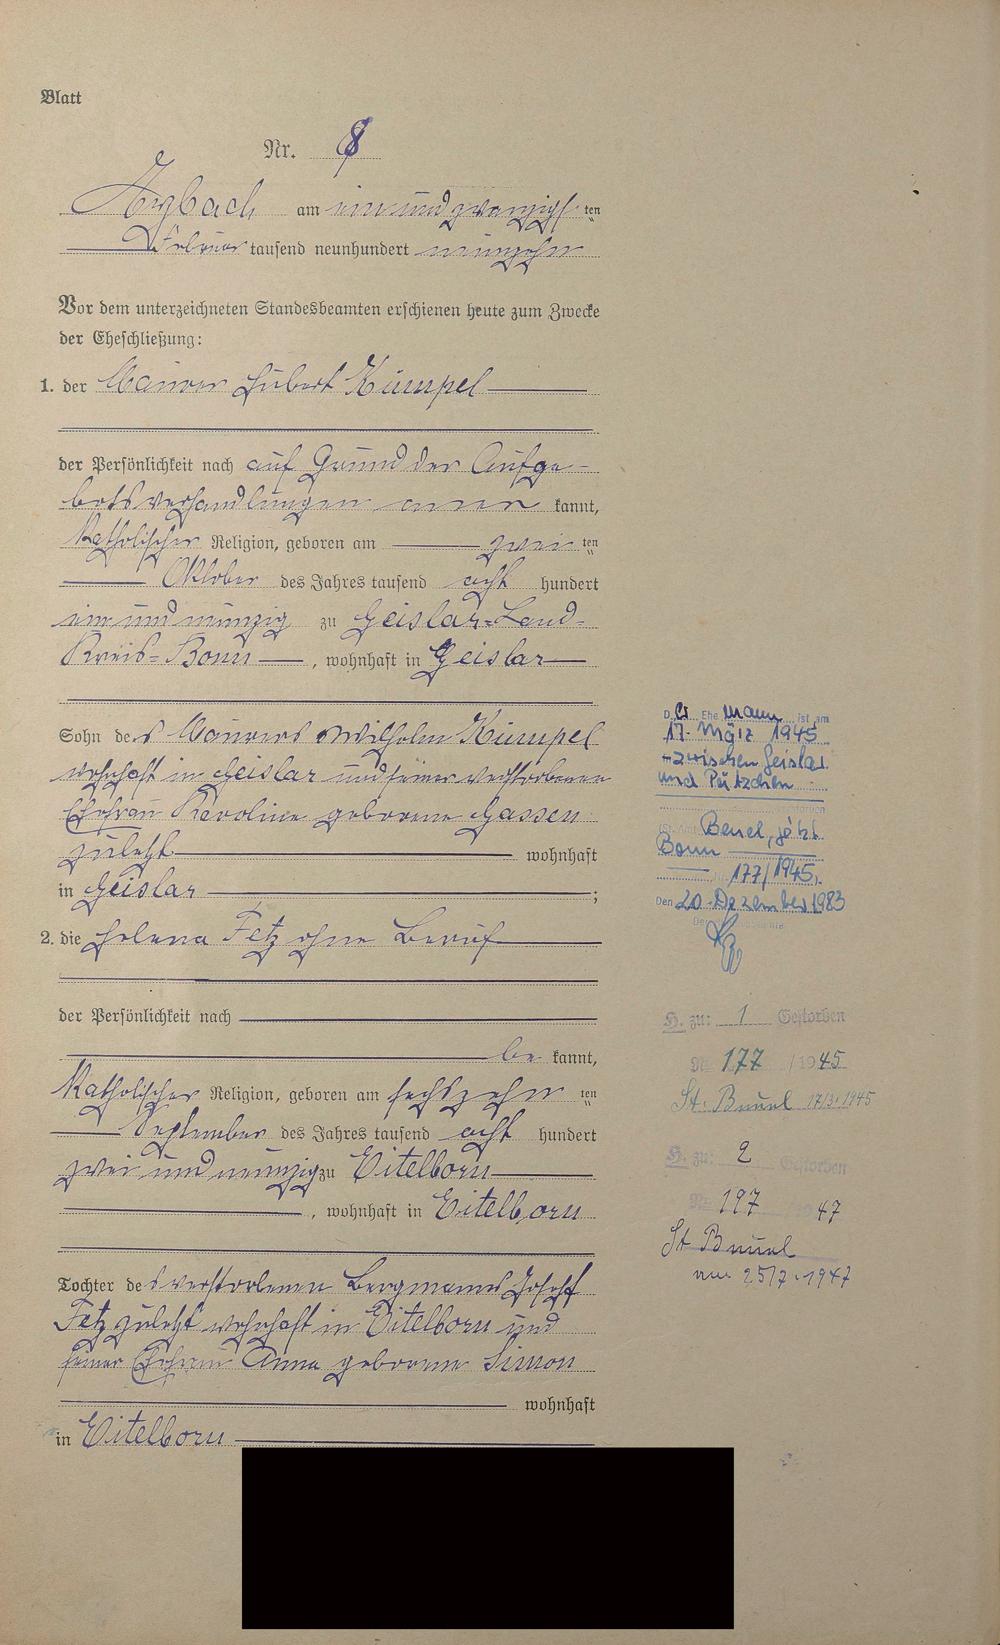 Blatt
Nr. 8
Arzbach am ein und zwanzigsten
Februar tausend neunhundert neunzehn
Vor dem unterzeichneten Standesbeamten erschienen heute zum Zwecke
der Eheschließung:
1. der Maurer Hubert Kümpel
der Persönlichkeit nach auf Grund der Aufge-
botsverhandlungen aner kannt,
katholischer Religion, geboren am zwei ten
Oktober des Jahres tausend acht hundert
ein und neunzig zu Geislar-Land-
Kreis-Bonn, wohnhaft in Geislar
Sohn des Maurers Wilhelm Kümpel
wohnhaft in Geislar und seiner verstorbenen
Ehefrau Karoline geborene Gassen
zuletzt wohnhaft
in Geislar;
2. die Helena Fetz ohne Beruf
der Persönlichkeit nach
be kannt,
katholischer Religion, geboren am sechszehn ten
September des Jahres tausend acht hundert
zwei und neunzig zu Eitelborn
, wohnhaft in Eitelborn
Tochter des verstorbenen Bergmanns Joseph
Fetz zuletzt wohnhaft in Eitelborn und
seiner Ehefrau Anna geborene Simon
wohnhaft
in Eitelborn
Der Ehemann ist am
17. März 1945
-zwischen Geislar
und Pützchen
Beuel, jetzt
Bonn
177/1945.
Den 20. Dezember 1983
H. zu: 1 Gestorben
Nr. 177 /1945
St. Beuel 17/3.1945
H. zu: 2 Gestorben
Nr. 197 /1947
St Beuel
am 25/7.1947